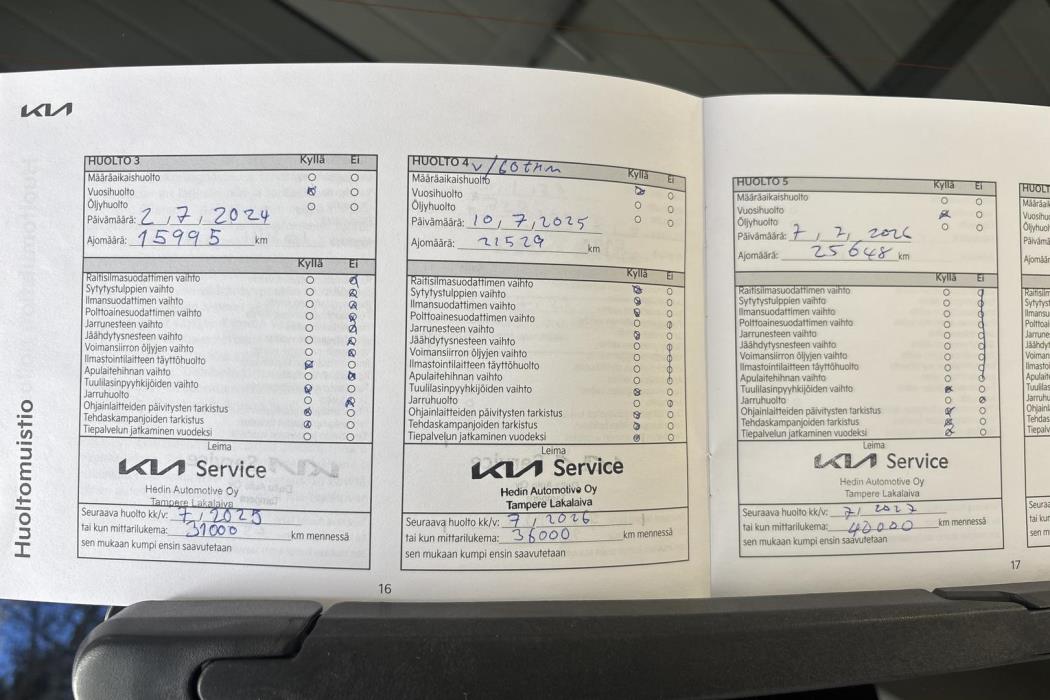 KIA
Huoltomuistio
HUOLTO 3 Kyllä Ei
Määräaikaishuolto
Vuosihuolto
Öljyhuolto
Päivämäärä: 2, 7, 2024
Ajomäärä: 15995 km
Kyllä Ei
Raitisilmasuodattimen vaihto
Sytytystulppien vaihto
Ilmansuodattimen vaihto
Polttoainesuodattimen vaihto
Jarrunesteen vaihto
Jäähdytysnesteen vaihto
Voimansiirron öljyjen vaihto
Ilmastointilaitteen täyttöhuolto
Apulaitehihnan vaihto
Tuulilasinpyyhkijöiden vaihto
Jarruhuolto
Ohjainlaitteiden päivitysten tarkistus
Tehdaskampanjoiden tarkistus
Tiepalvelun jatkaminen vuodeksi
Leima
KIA Service
Hedin Automotive Oy
Tampere Lakalaiva
Seuraava huolto kk/v: 7, 2025
tai kun mittarilukema: 31000 km mennessä
sen mukaan kumpi ensin saavutetaan
HUOLTO 4 v/60tkm Kyllä Ei
Määräaikaishuolto
Vuosihuolto
Öljyhuolto
Päivämäärä: 10, 7, 2025
Ajomäärä: 21529 km
Kyllä Ei
Raitisilmasuodattimen vaihto
Sytytystulppien vaihto
Ilmansuodattimen vaihto
Polttoainesuodattimen vaihto
Jarrunesteen vaihto
Jäähdytysnesteen vaihto
Voimansiirron öljyjen vaihto
Ilmastointilaitteen täyttöhuolto
Apulaitehihnan vaihto
Tuulilasinpyyhkijöiden vaihto
Jarruhuolto
Ohjainlaitteiden päivitysten tarkistus
Tehdaskampanjoiden tarkistus
Tiepalvelun jatkaminen vuodeksi
Leima
KIA Service
Hedin Automotive Oy
Tampere Lakalaiva
Seuraava huolto kk/v: 7, 2026
tai kun mittarilukema: 36000 km mennessä
sen mukaan kumpi ensin saavutetaan
16
HUOLTO 5 Kyllä Ei
Määräaikaishuolto
Vuosihuolto
Öljyhuolto
Päivämäärä: 7, 2, 2026
Ajomäärä: 25648 km
Kyllä Ei
Raitisilmasuodattimen vaihto
Sytytystulppien vaihto
Ilmansuodattimen vaihto
Polttoainesuodattimen vaihto
Jarrunesteen vaihto
Jäähdytysnesteen vaihto
Voimansiirron öljyjen vaihto
Ilmastointilaitteen täyttöhuolto
Apulaitehihnan vaihto
Tuulilasinpyyhkijöiden vaihto
Jarruhuolto
Ohjainlaitteiden päivitysten tarkistus
Tehdaskampanjoiden tarkistus
Tiepalvelun jatkaminen vuodeksi
Leima
KIA Service
Hedin Automotive Oy
Tampere Lakalaiva
Seuraava huolto kk/v: 7, 2027
tai kun mittarilukema: 40000 km mennessä
sen mukaan kumpi ensin saavutetaan
17